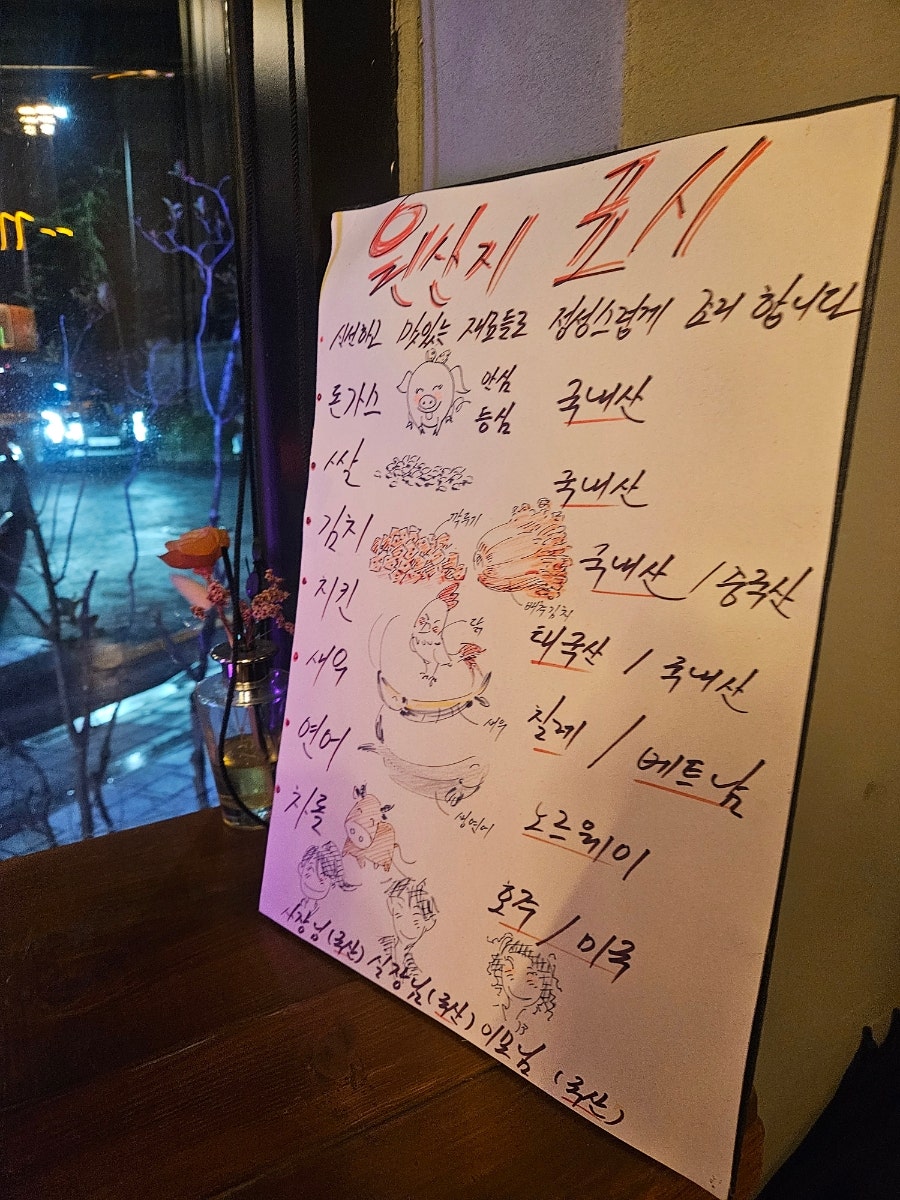 원산지 표시
신선하고 맛있는 재료들로 정성스럽게 조리 합니다
돈가스 안심 등심 국내산
쌀 국내산
김치 깍두기 배추김치 국내산 / 중국산
치킨 닭 태국산 / 국내산
새우 새우 칠레 / 베트남
연어 생연어 노르웨이
차돌 호주 / 미국
사장님 (국산) 실장님 (국산) 이모님 (국산)